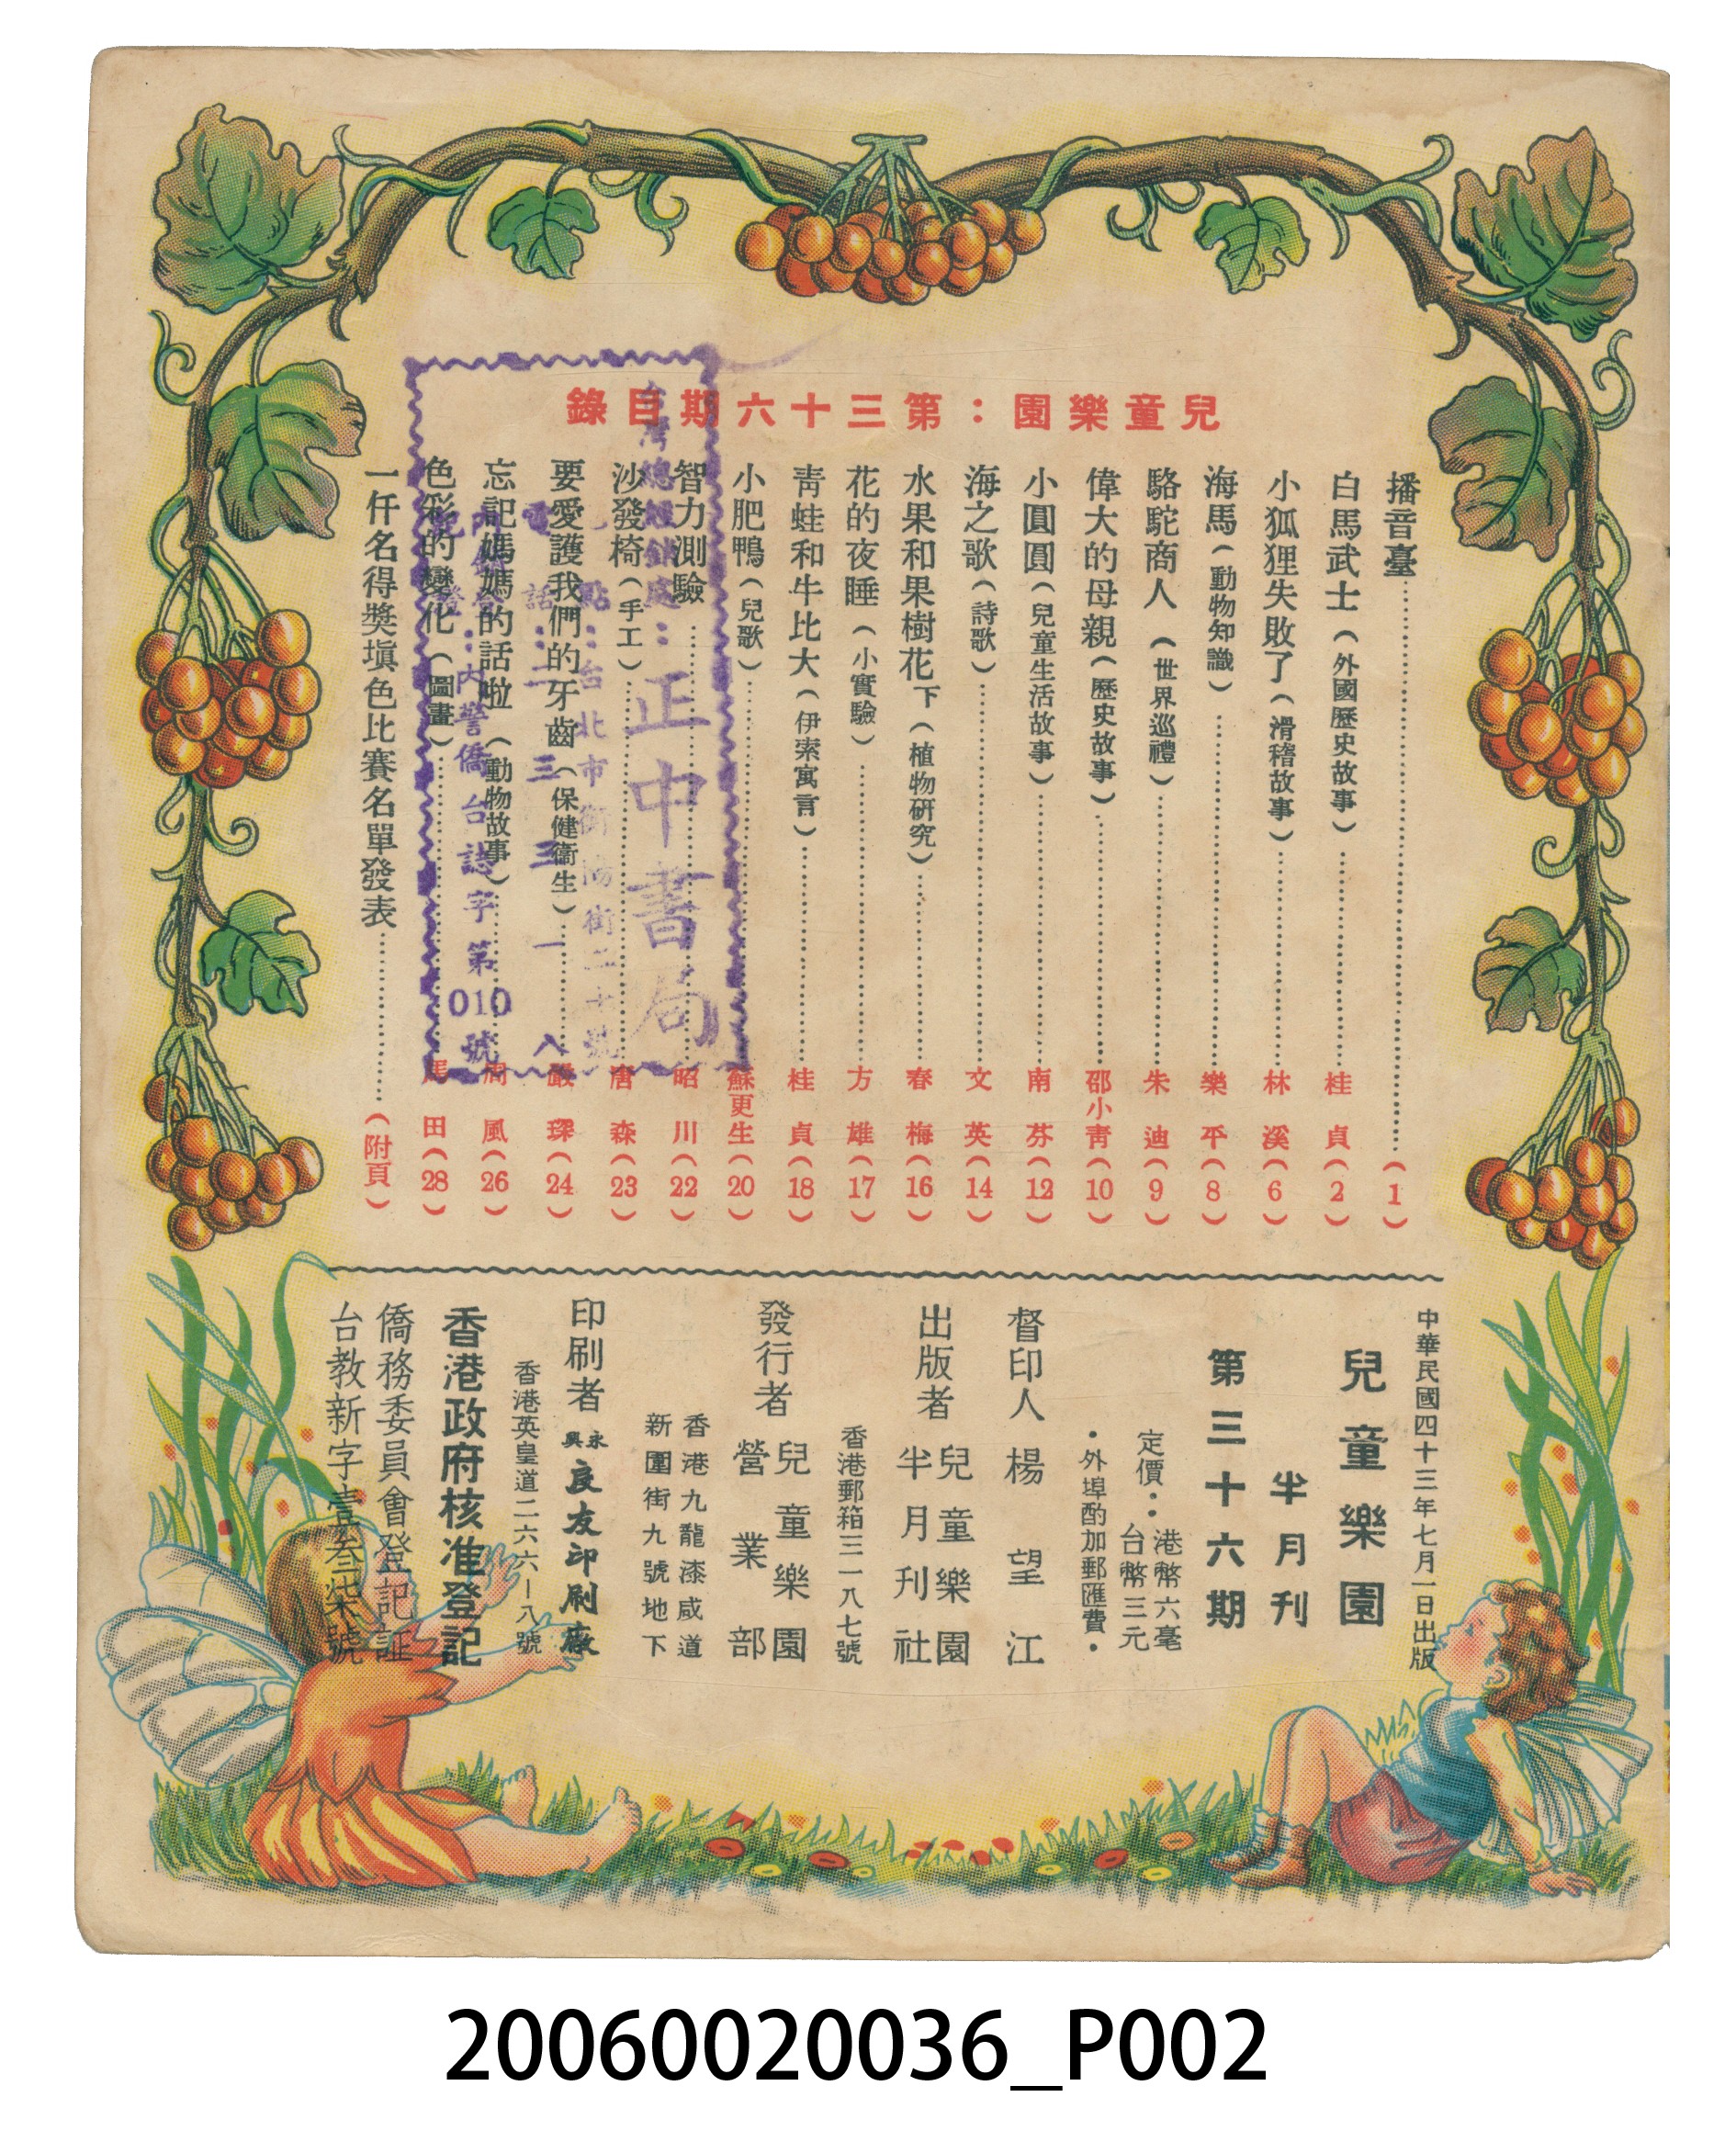 兒童樂園：第三十六期目錄
播音臺……(1)
白馬武士(外國歷史故事)……桂貞(2)
小狐狸失敗了(滑稽故事)……林溪(6)
海馬(動物知識)……樂平(8)
駱駝商人(世界巡禮)……朱迪(9)
偉大的母親(歷史故事)……邵小青(10)
小圓圓(兒童生活故事)……南芬(12)
海之歌(詩歌)……文英(14)
水果和果樹花下(植物研究)……春梅(16)
花的夜睡(小實驗)……方雄(17)
青蛙和牛比大(伊索寓言)……桂貞(18)
小肥鴨(兒歌)……蘇更生(20)
智力測驗……昭川(22)
沙發椅(手工)……唐森(23)
要愛護我們的牙齒(保健衞生)……嚴琛(24)
忘記媽媽的話啦(動物故事)……周風(26)
色彩的變化(圖畫)……馬田(28)
一仟名得獎塡色比賽名單發表……(附頁)
台灣總經銷處：正中書局
地點：台北市衡陽街二十號
電話：二三三一八
內銷證：內警僑台誌字第010號
中華民國四十三年七月一日出版
兒童樂園
半月刊
第三十六期
定價：港幣六毫
台幣三元
•外埠酌加郵匯費•
督印人 楊望江
出版者 兒童樂園
半月刊社
香港郵箱三一八七號
發行者 兒童樂園
營業部
香港九龍漆咸道
新圍街九號地下
印刷者 永興良友印刷廠
香港英皇道二六六—八號
香港政府核准登記
僑務委員會登記証
台教新字壹叁柒號
20060020036_P002